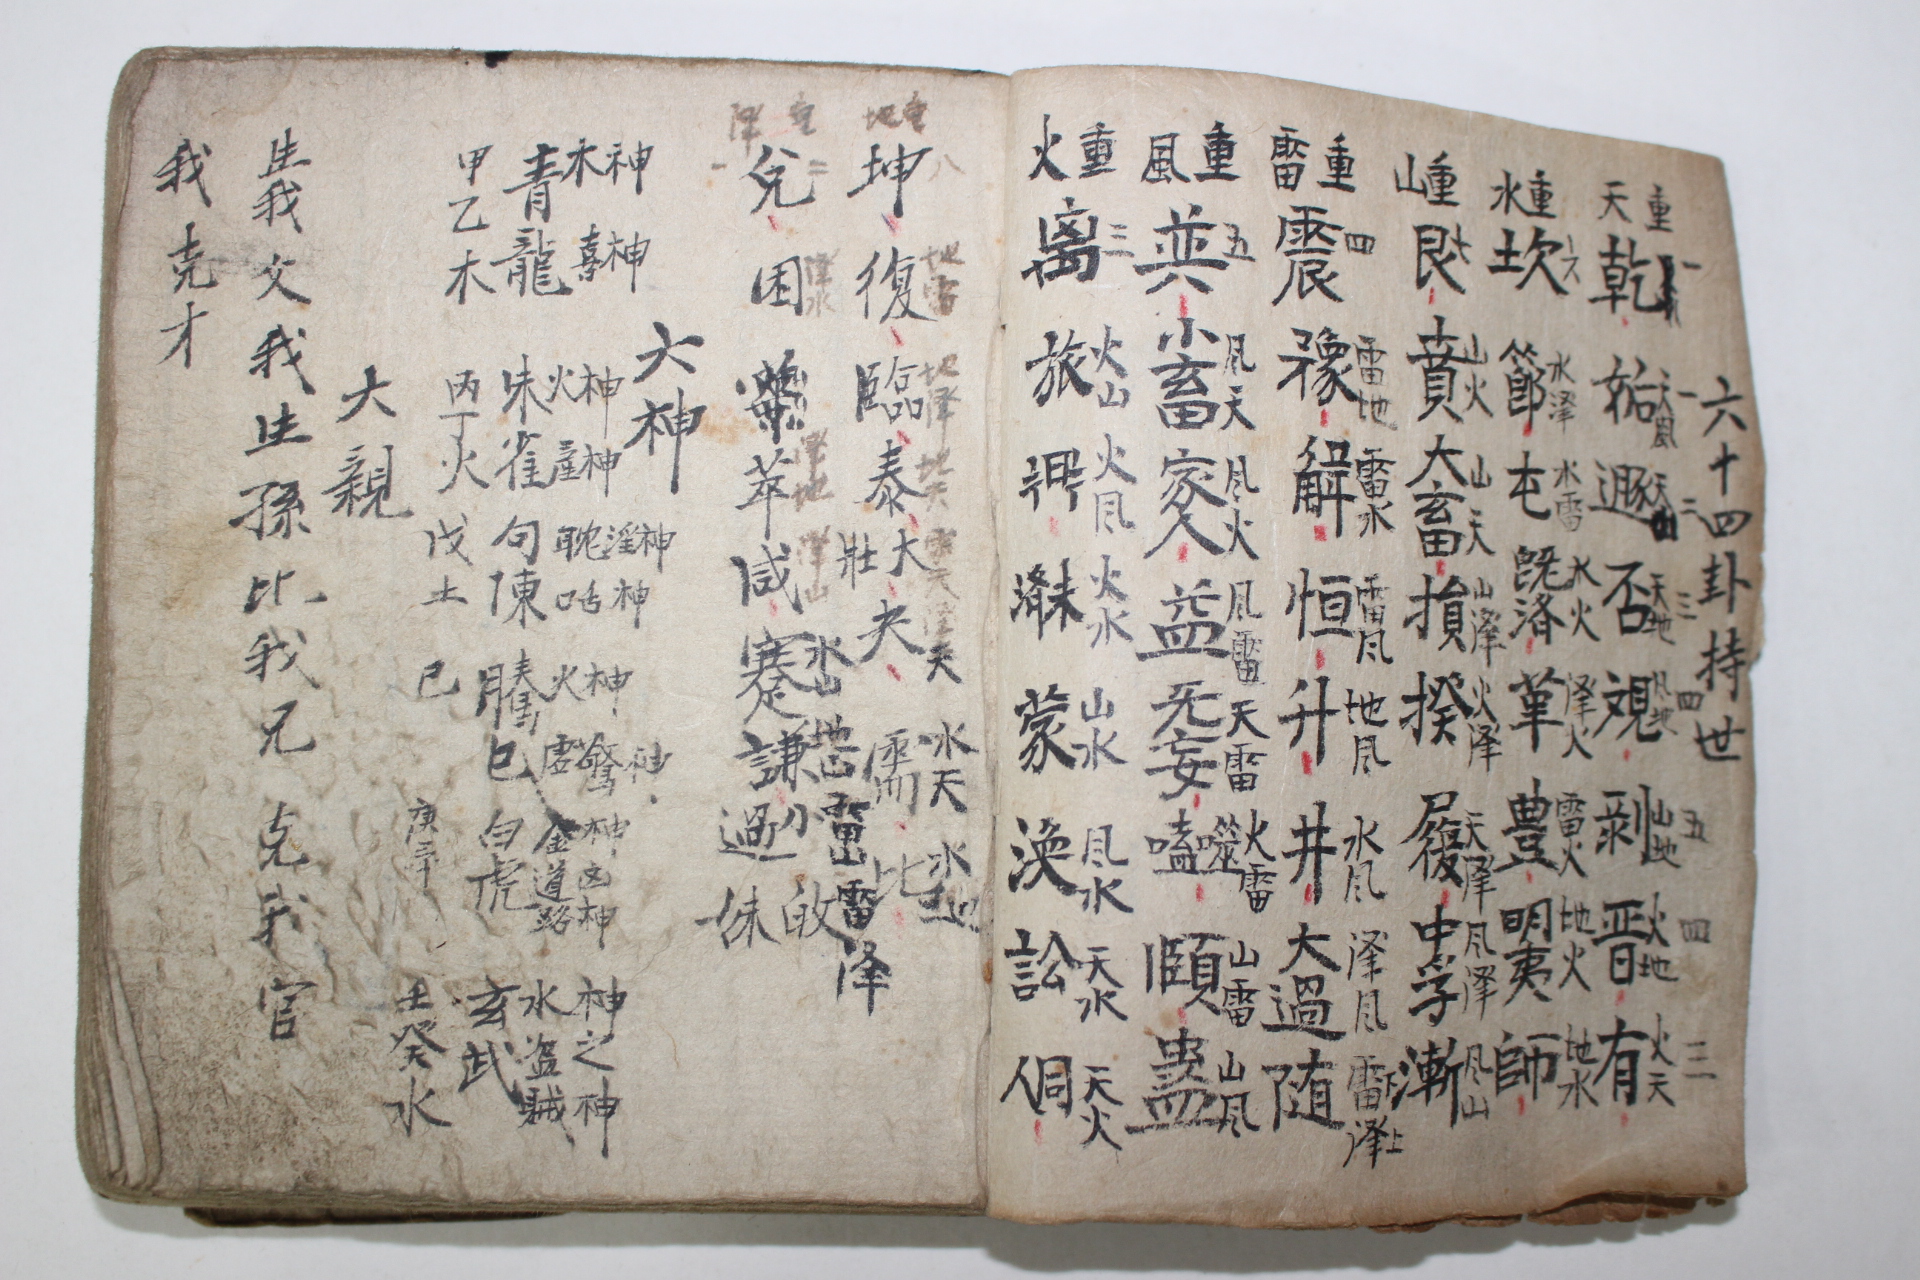 六十四卦持世
重天 乾 姤 天風 遯 天山 否 天地 观 风地 剥 山地 晋 火地 有 火天
一 一 二 三 四 五 四 三
重水 坎 六 節 水泽 屯 水雷 既济 水火 革 泽火 豊 雷火 明夷 地火 師 地水
重山 艮 七 賁 山火 大畜 山天 損 山泽 揆 火泽 履 天泽 中孚 风泽 漸 风山
重雷 震 四 豫 雷地 解 雷水 恒 雷风 升 地风 井 水风 大過 泽风 随 雷下泽上
重風 巽 五 小畜 风天 家人 风火 益 风雷 无妄 天雷 噬嗑 火雷 頤 山雷 蠱 山风
重火 离 三 旅 火山 火风 火水 蒙 山水 渙 风水 訟 天水 仝 天火
重地 坤 八 復 地雷 臨 地泽 泰 地天 大壮 雷天 夬 泽天 需 水天 比 水地
重泽 兌 二 困 泽水 萃 泽地 咸 泽山 蹇 水山 謙 地山 小過 雷山 妹 雷泽
六神
木神 喜神
青龍
甲乙木
火神 産神
味雀
丙丁火
淫神 神
句陳
戊土
火神 虚驚神
騰巳
己
金神 道路 凶神
白虎
庚辛
水神 盗賊之神
玄武
壬癸水
大親
生我父我生孫比我兄克我官
我克才